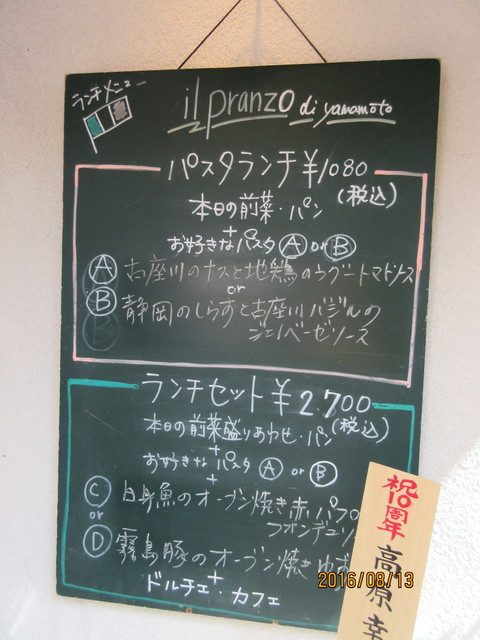 ランチメニュー
il pranzo di yamamoto
パスタランチ ¥1080
(税込)
本日の前菜・パン
+
お好きなパスタ Ⓐ or Ⓑ
Ⓐ 古座川のナスと地鶏のラグートマトソース
or
Ⓑ 静岡のしらすと古座川バジルの
ジェノベーゼソース
ランチセット ¥2700
(税込)
本日の前菜盛りあわせ・パン
+
お好きなパスタ Ⓐ or Ⓑ
+
Ⓒ 白身魚のオーブン焼き 赤パプ
フォンデュソ
or
Ⓓ 霧島豚のオーブン焼き ゆず
+
ドルチェ・カフェ
祝10周年
高原 幸
2016/08/13